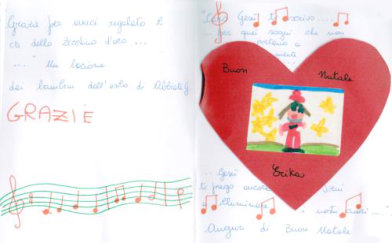 Grazie per averci regalato il
cd dello Zecchino d'oro ...
..." Un bacione
dei bambini dell'asilo di
GRAZIE
Gesù ti scrivo
per quei sogni che non
Buon Natale
Erika
... Gesù
ti prego ancora
illuminare
Auguri di Buon Natale